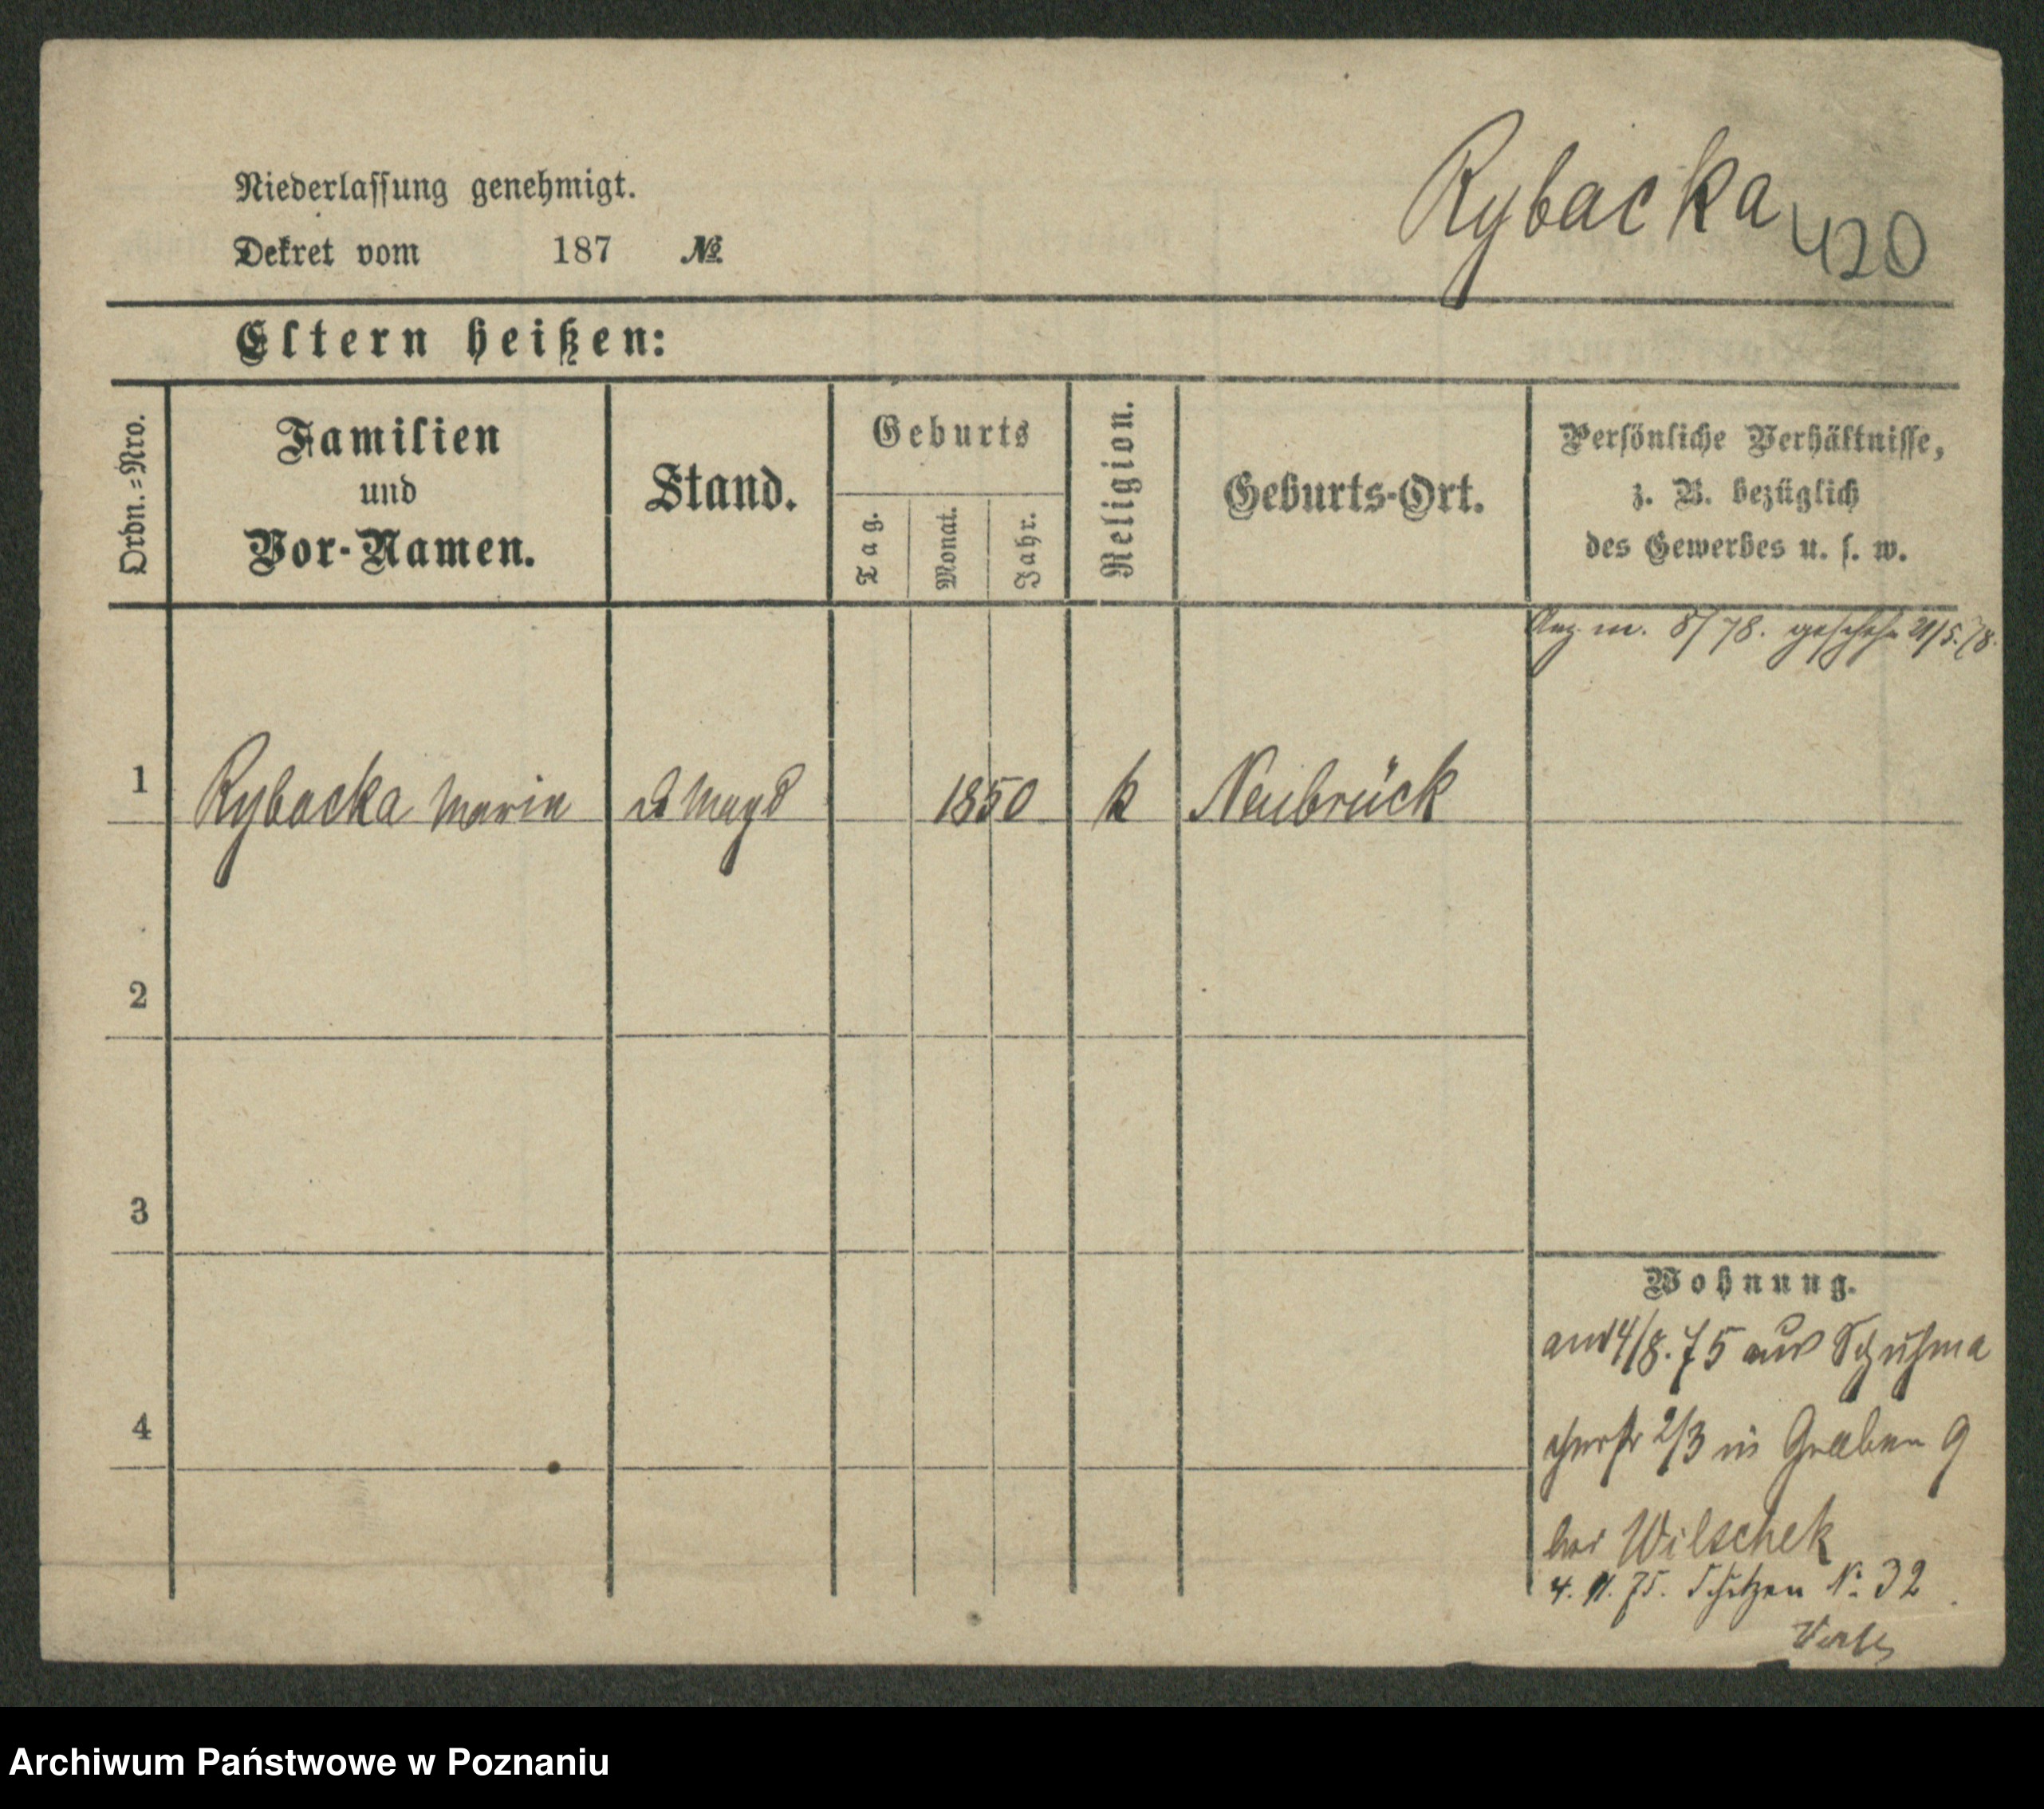 Rybacka
420
Niederlassung genehmigt.
Dekret vom 187 №
Eltern heißen:
Ordn.=Nro.
Familien
und
Vor-Namen.
Stand.
Geburts
Tag.
Monat.
Jahr.
Religion.
Geburts-Ort.
Persönliche Verhältnisse,
z. B. bezüglich
des Gewerbes u. s. w.
m. 8/78. 21/5./78.
1 Rybacka Maria Magd 1850 k Neubrück
2
3
4
Wohnung.
4/8.75 aus Schuhma
cherstr 2/3 in Graben 9
bei Wilschek
4. 11. 75. Schützen № 32
Archiwum Państwowe w Poznaniu